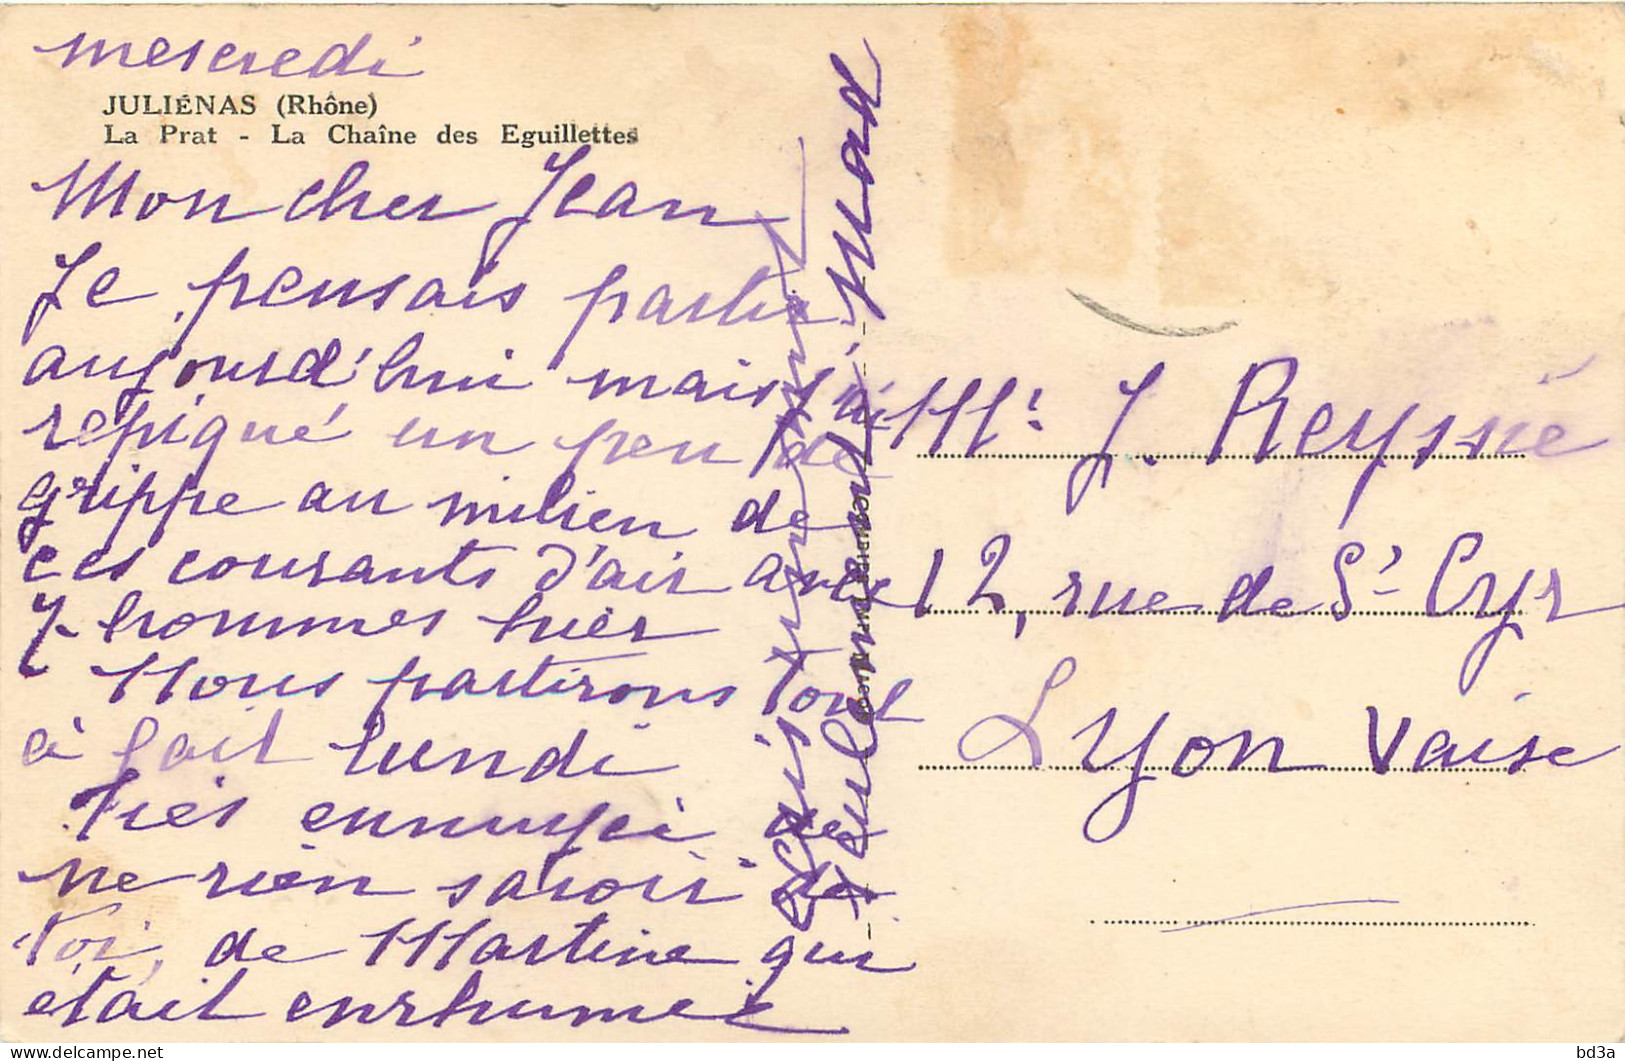 mercredi
JULIÉNAS (Rhône)
La Prat - La Chaîne des Eguillettes
Mon cher Jean
Je pensais partir
aujourd'hui mais j'ai
repiqué un peu de
grippe au milieu de
ces courants d'air avec
7 hommes hier
Nous partirons tout
à fait lundi
très ennuyée de
ne rien savoir de
toi, de Martine qui
était enrhumée
Mr J. Reyssié
12, rue de St Cyr
Lyon Vaise
bd3a